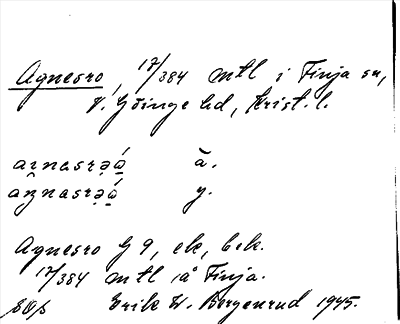 Agnesro, 17/384 mtl i Finja sn,
V. Göinge hd, Krist. l.
aɪnasrəó̱ ä.
aŋnasrəó̱ y.
Agnesro G 9, ek, bek.
17/384 mtl iå Finja.
Erik W. Bergenrud 1945.